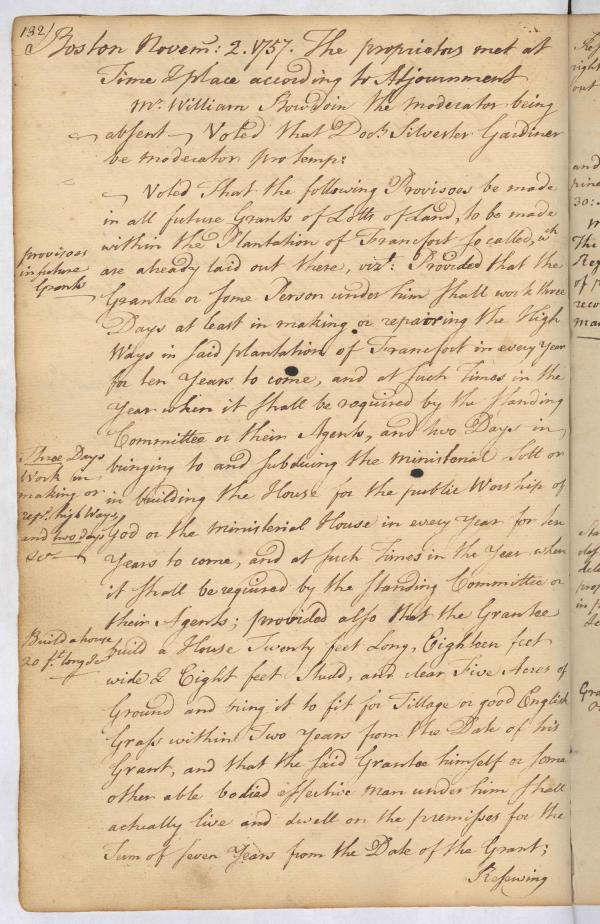 132)
Boston Novem: 2. 1757. The proprietors met at
Time & place according to Adjournment
Mr. William Bowdoin the moderator being
absent Voted that Doctr Silvester Gardiner
be moderator pro temp:
Voted That the following Provisoes be made
in all future Grants of Lotts of Land, to be made
within the Plantation of Francfort so called, wch
are already laid out there, vizt: Provided that the
Grantee or some Person under him shall work three
Days at least in making or repairing the High
Ways in said plantation of Francfort in every Year
for ten Years to come, and at such Times in the
Year when it shall be required by the standing
Committee or their Agents, and two Days in
bringing to and subduing the ministerial Lott or
in building the House for the public Worship of
God or the ministerial House in every Year for ten
Years to come, and at such Times in the Year when
it shall be required by the standing Committee or
their Agents; provided also that the Grantee
build a House Twenty feet Long, Eighteen feet
wide & Eight feet Studd, and clear Five Acres of
Ground and bring it to fit for Tillage or good English
Grass within Two Years from the Date of his
Grant, and that the said Grantee himself or some
other able bodied effective man under him shall
actually live and dwell on the premisses for the
Term of seven Years from the Date of the Grant;
Reserving
provisoes
in future
Grants
Three Days
Work in
making or
repg. high Ways
and two days
&c
Build a house
20 ft. long &c
right
out
and
30:
The
Reg
of p
reco
man
in p
Gra